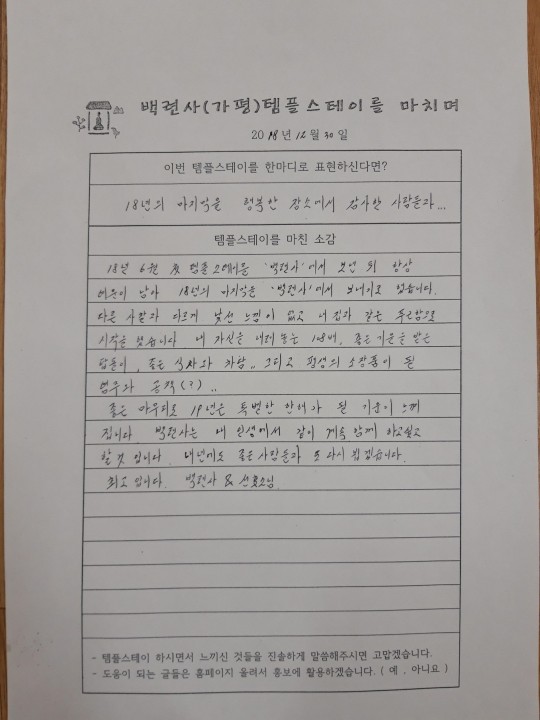 백련사(가평)템플스테이를 마치며
2018년 12월 30일
이번 템플스테이를 한마디로 표현하신다면?
18년의 마지막을 행복한 장소에서 감사한 사람들과...
템플스테이를 마친 소감
18년 6월 첫 템플스테이를 '백련사'에서 보낸 뒤 항상
여운이 남아 18년의 마지막을 '백련사'에서 보내기로 했습니다.
다른 사찰과 다르게 낯선 느낌이 없고 내 집과 같은 푸근함으로
시작을 했습니다. 내 자신을 내려 놓는 108배, 좋은 기운을 받은
탑돌이, 좋은 식사와 차담.. 그리고 평생의 소장품이 될
염주와 공작(?)..
좋은 마무리로 19년은 특별한 한해가 될 기운이 느껴
집니다. 백련사는 내 인생에서 같이 계속 함께 하고싶고
할 것 입니다. 내년에도 좋은 사람들과 또 다시 뵙겠습니다.
최고입니다. 백련사 &
- 템플스테이 하시면서 느끼신 것들을 진솔하게 말씀해주시면 고맙겠습니다.
- 도움이 되는 글들은 홈페이지 올려서 홍보에 활용하겠습니다. ( 예 , 아니요 )